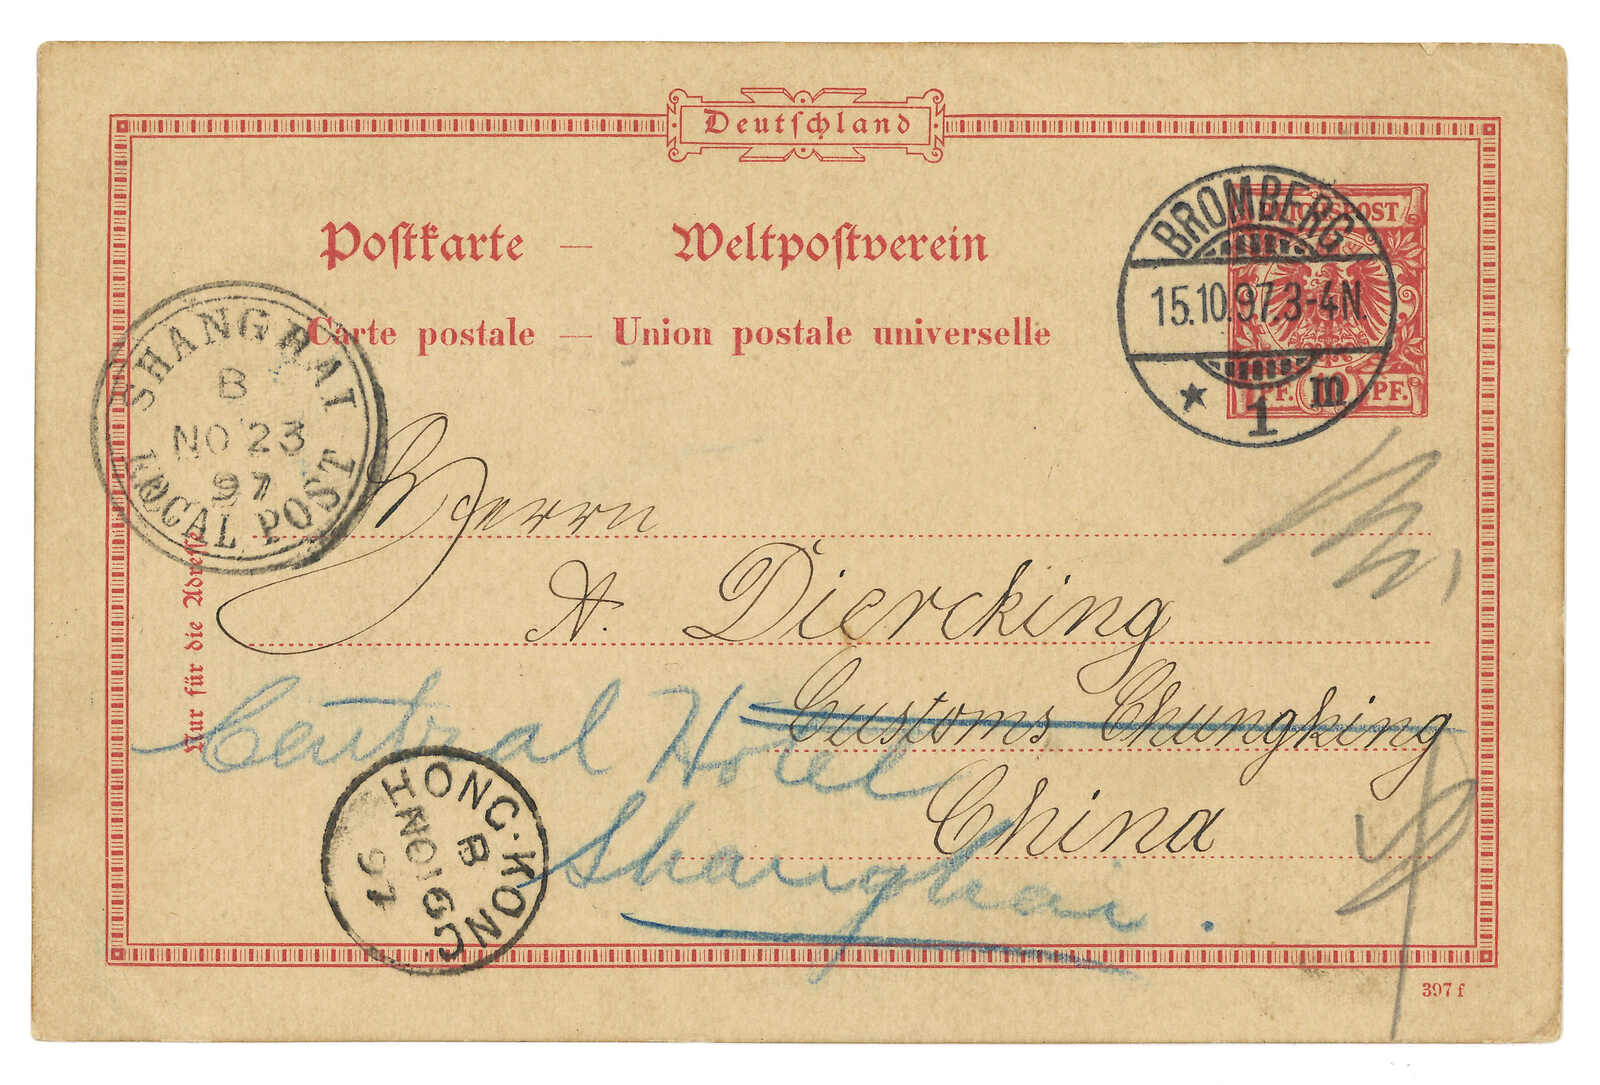 Deutschland
Postkarte — Weltpostverein
Carte postale — Union postale universelle
REICHSPOST
PF. 10 PF.
BROMBERG
15.10.97.3-4N.
* 1 m
SHANGHAI
B
NO 23
97
LOCAL POST
Nur für die Adresse
Herrn
A. Diercking
Customs Chungking
China
Central Hotel
Shanghai.
HONG-KONG
B
NO 16
97
397 f